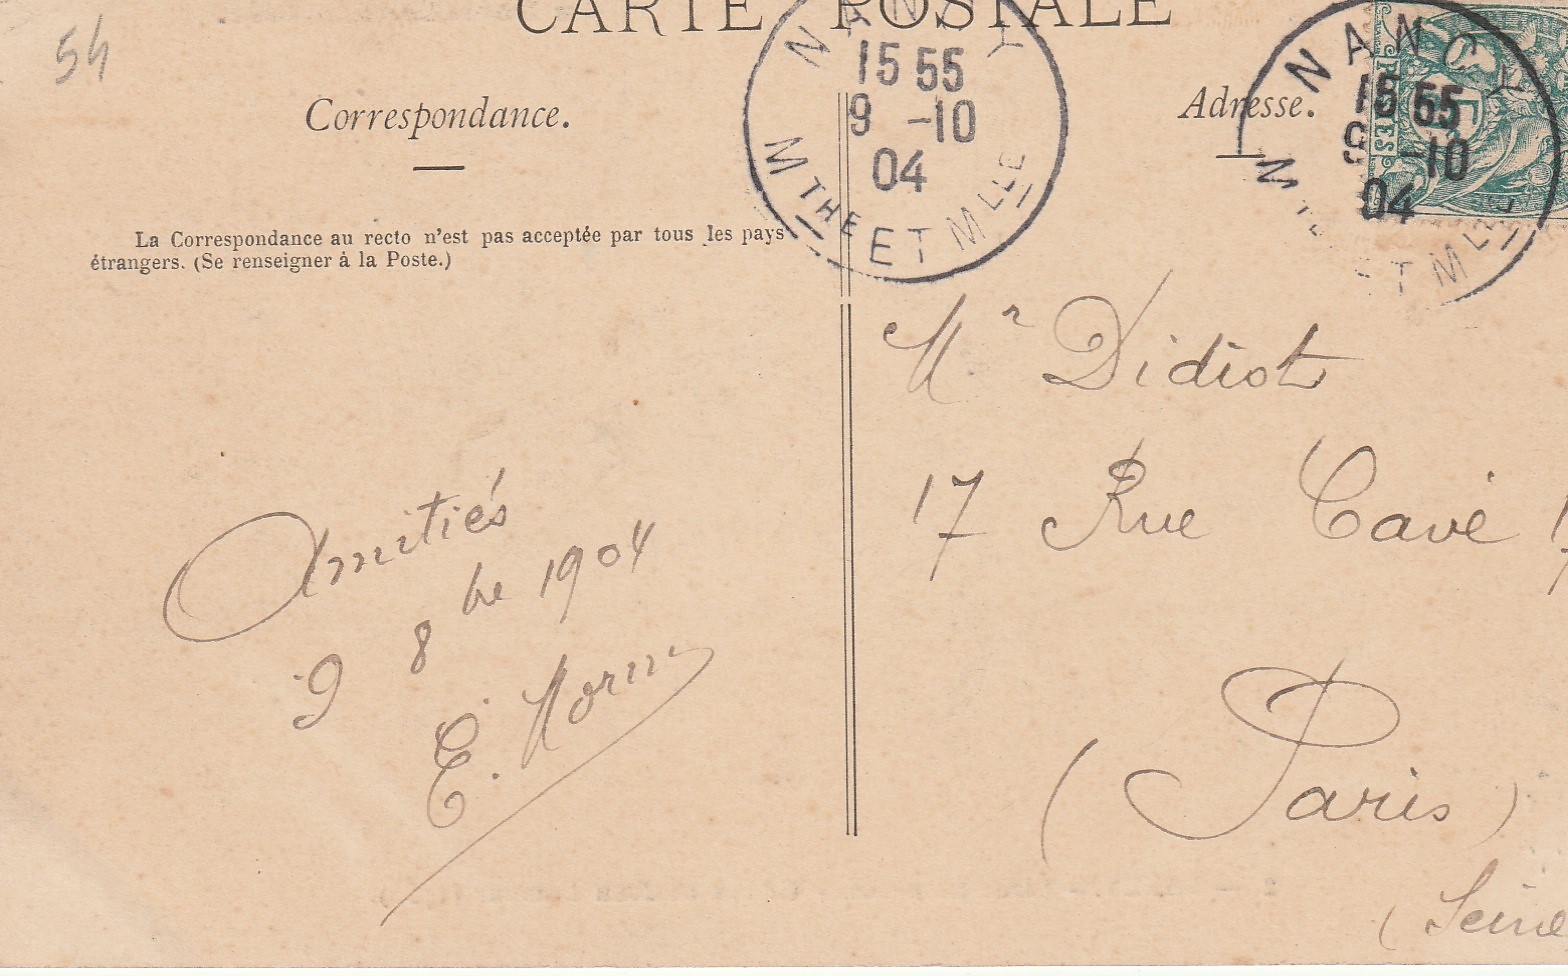 CARTE POSTALE
54
NANCY
15 55
9 -10
04
MTHE ET MLLE
NANCY
15 55
9 -10
04
Correspondance.
Adresse.
La Correspondance au recto n'est pas acceptée par tous les pays
étrangers. (Se renseigner à la Poste.)
Mr Didiot
17 Rue Cavé 17
Amitiés
9 8bre 1904
E. Morin
(Paris)
(Seine